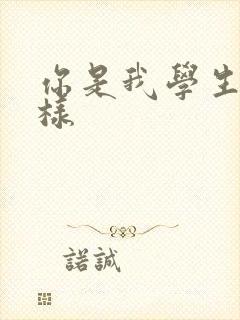 你是我學生
樣
諾誠